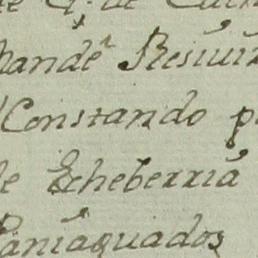 mandé Resivi
Constando p
de Echeberria
Paniaguados